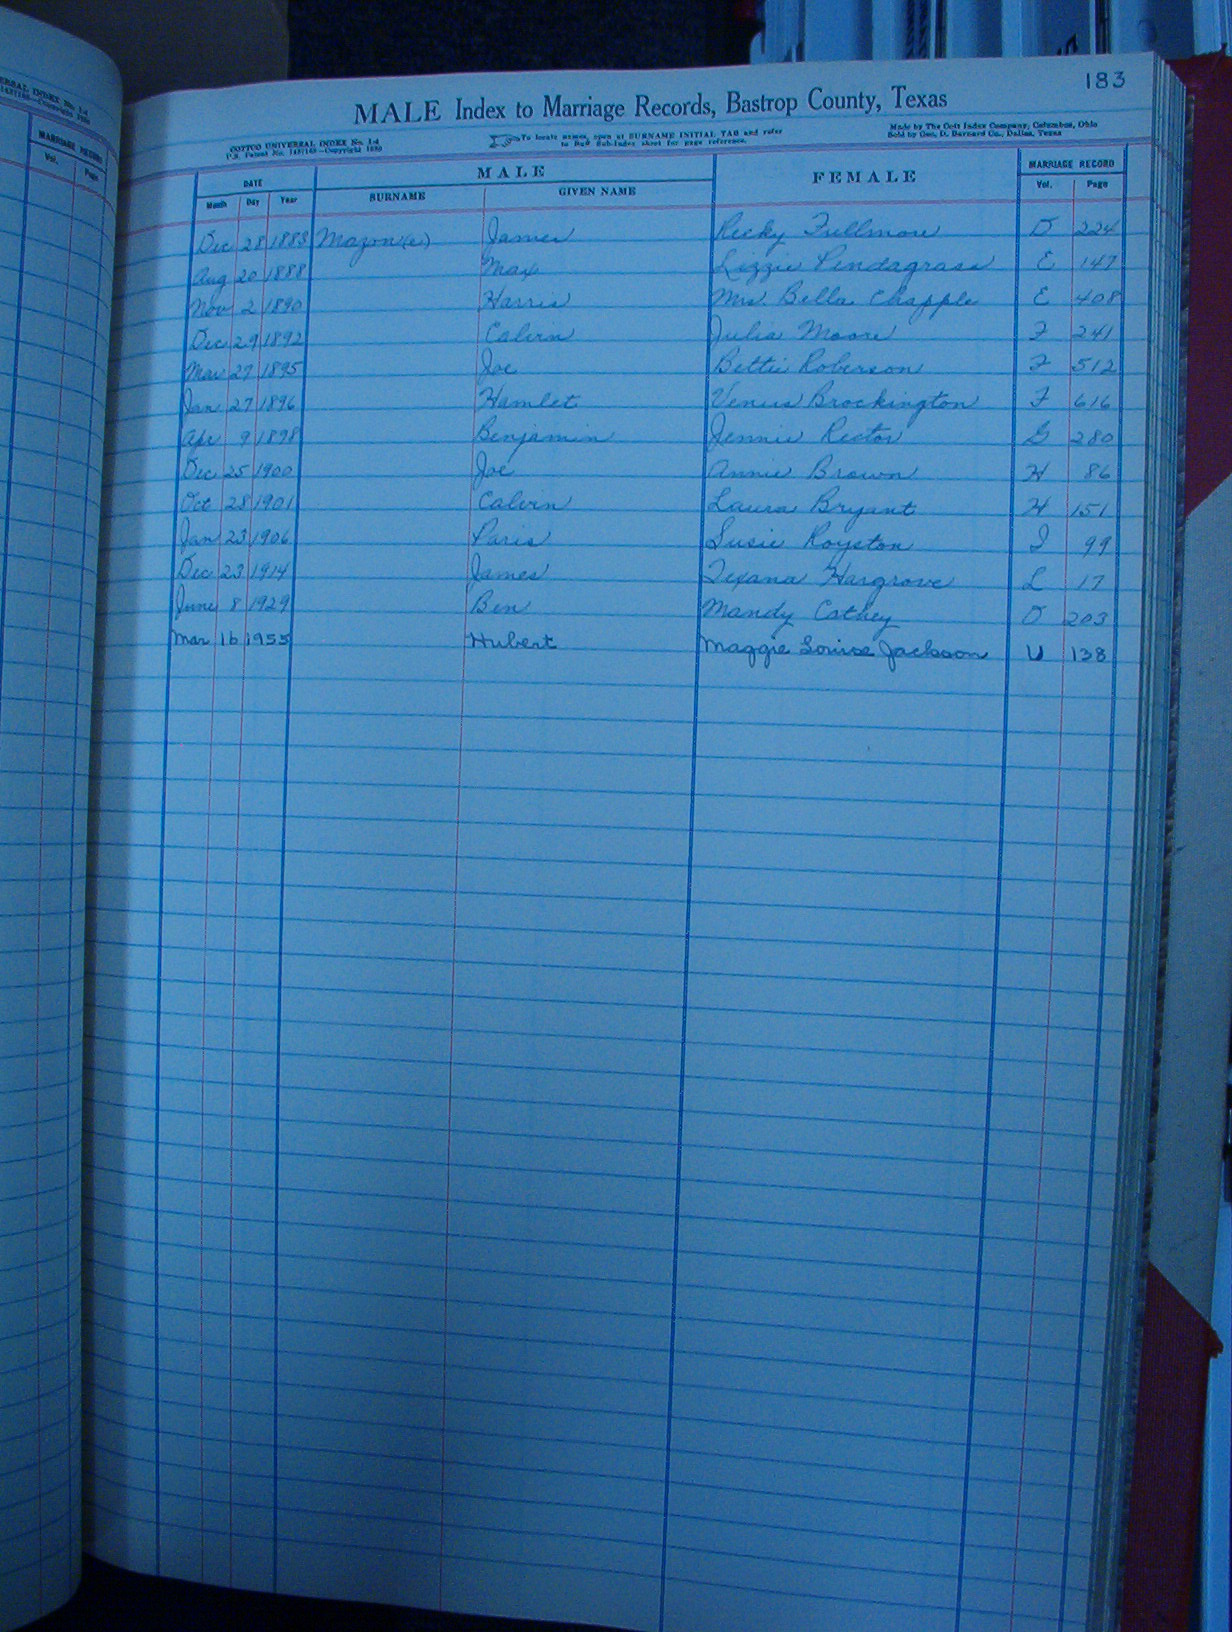 183
MALE Index to Marriage Records, Bastrop County, Texas
COTTCO UNIVERSAL INDEX No. 1-d
To locate names, open at SURNAME INITIAL TAB and refer
to Sub-Index sheet for page reference.
Made by The Cott Index Company, Columbus, Ohio
Sold by Geo. D. Barnard Co., Dallas, Texas
DATE MALE FEMALE MARRIAGE RECORD
Month Day Year SURNAME GIVEN NAME Vol. Page
Dec 28 1883 Mazon(e) James Becky Fullmore D 224
Aug 20 1888 Max Lizzie Pendagrass E 147
Nov 2 1890 Harris Mrs. Bella Chapple E 408
Dec 29 1892 Calvin Julia Moore F 241
Mar 27 1895 Joe Bettie Roberson F 512
Jan 27 1896 Hamlet Venus Brockington F 616
Apr 9 1898 Benjamin Jennie Rector G 280
Dec 25 1900 Joe Annie Brown H 86
Oct 28 1901 Calvin Laura Bryant H 151
Jan 23 1906 Paris Susie Royston I 99
Dec 23 1914 James Texana Hargrove L 17
June 8 1929 Ben Mandy Cathey O 203
Mar 16 1955 Hubert Maggie Louise Jackson U 138
MARRIAGE RECORD
Vol. Page